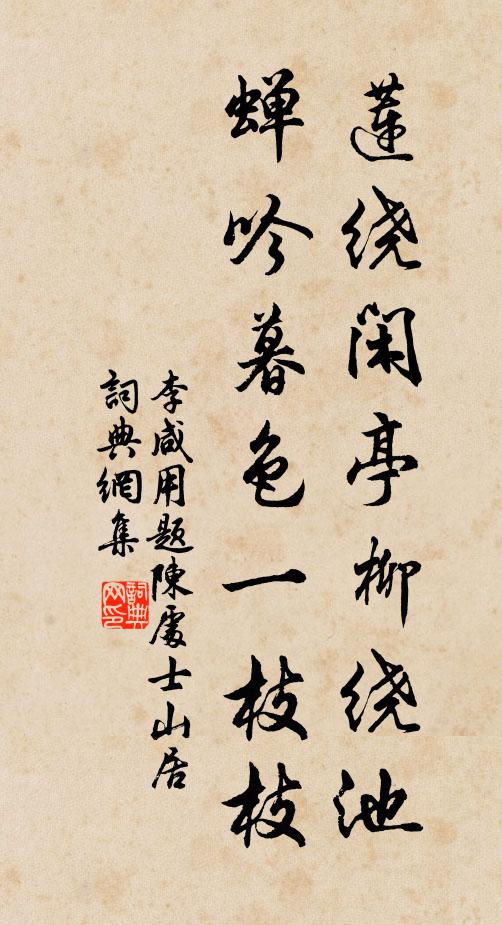 蓮绕闲亭柳绕池
蝉吟暮色一枝枝
李咸用题陳處士山居
詞典網集
詞典网印